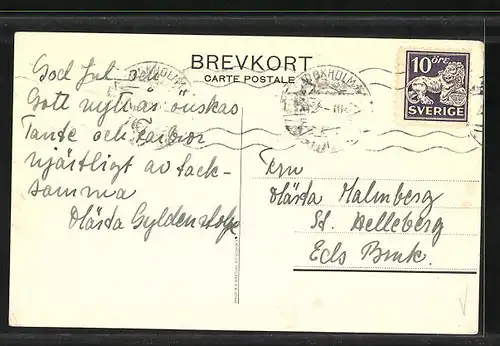 BREVKORT
CARTE POSTALE
10 ÖRE
SVERIGE
STOCKHOLM
God Jul och
Gott nytt år önskas
Tante och farbror
hjärtligt av tack-
samma
Märta Gyldenstolpe
Fru
Märta Malmberg
St. Delleberg
Eds Bruk.